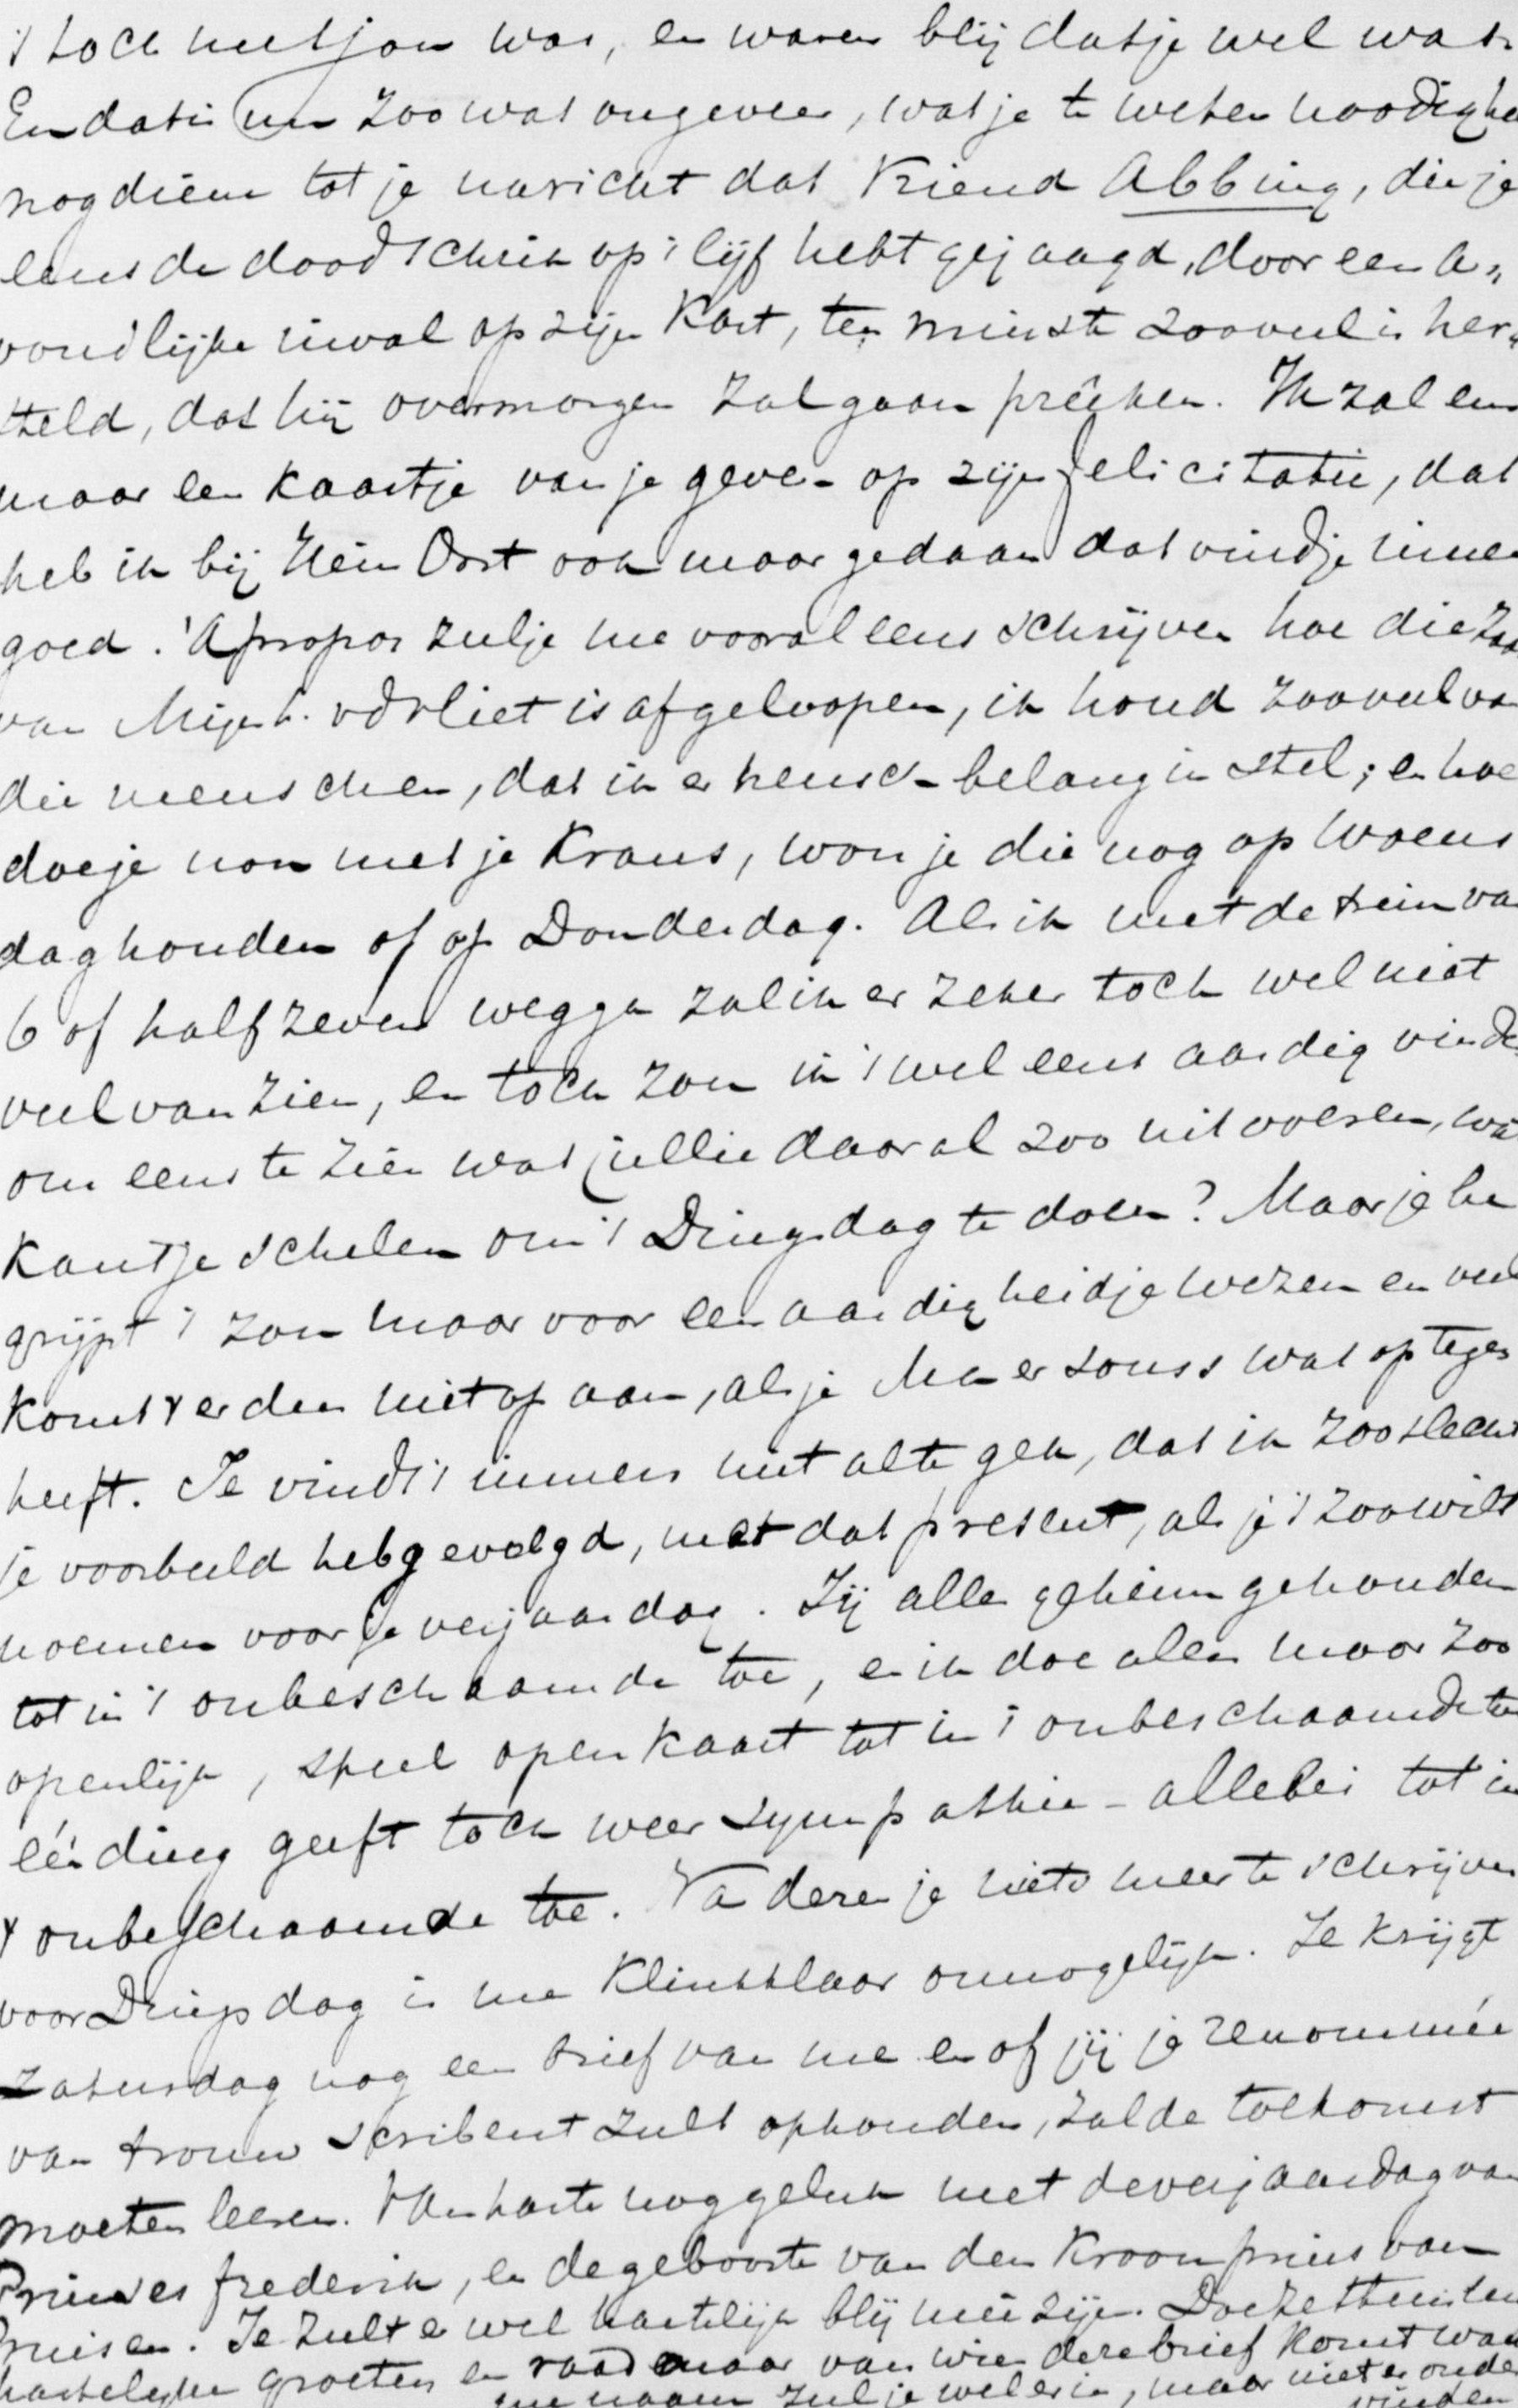 't toch niet jou was, en waren blij dat je wel was.
En dat is nu zoo wat ongeveer, wat je te weten noodig ha
nog diene tot je naricht dat vriend Abbing, die je
eens de doodschrik op 't lijf hebt gejaagd, door een a„
vondlijke inval op zijn Kast, ten minste zooveel is her„
steld, dat hij overmorgen zal gaan prêeken. Ik zal em
maar een kaartje van je geven op zijn felicitatie, dat
heb ik bij Hein Oort ook maar gedaan dat vind je immer
goed. 'Apropos zul je me vooral eens schrijven hoe die zaa
van Mijnh. vdrVliet is afgeloopen, ik houd zooveel van
die menschen, dat ik er heusch belang in stel; en hoe
doe je nou met je Krans, wou je die nog op Woens
dag houden of op Donderdag. Als ik met de trein van
6 of half zeven wegga zal ik er zeker toch wel niet
veel van zien, en toch zou ik 't wel eens aardig vinden
om eens te zien wat jullie daar al zoo uitvoeren, wat
kan 't je schelen om 't Dingsdag te doen? Maar je be
grijpt 't zou maar voor een aardigheidje wezen en veel
komt 't er dan niet op aan, als je Ma er souss wat op tegen
heeft. Je vindt 't immers niet al te gek, dat ik zoo slecht
je voorbeeld heb gevolgd, met dat present, als je 't zoo wilt
noemen voor je verjaardag. Jij alles geheim gehouden
tot in 't onbeschaamde toe, en ik doe alles maar zoo
openlijk, speel open kaart tot in 't onbeschaamde toe
één ding geeft toch weer sympathie - allebei tot in
't onbeschaamde toe. Na dezen je niets meer te schrijven
voor Dingsdag is me klinkklaar onmogelijk. Je krijgt
Zatursdag nog een brief van me en of jij je renommée
van trouw scribent zult ophouden, zal de toekomst
moeten leeren. Van harte nog geluk met de verjaardag van
Prinses Frederik, en de geboorte van den Kroonprins van
Pruisen. Je zult er wel hartelijk blij meê zijn. Doe
hartelijke groeten en raad maar van wien deze brief komt want
me naam zul je wel er in, maar niet er onder
vinden